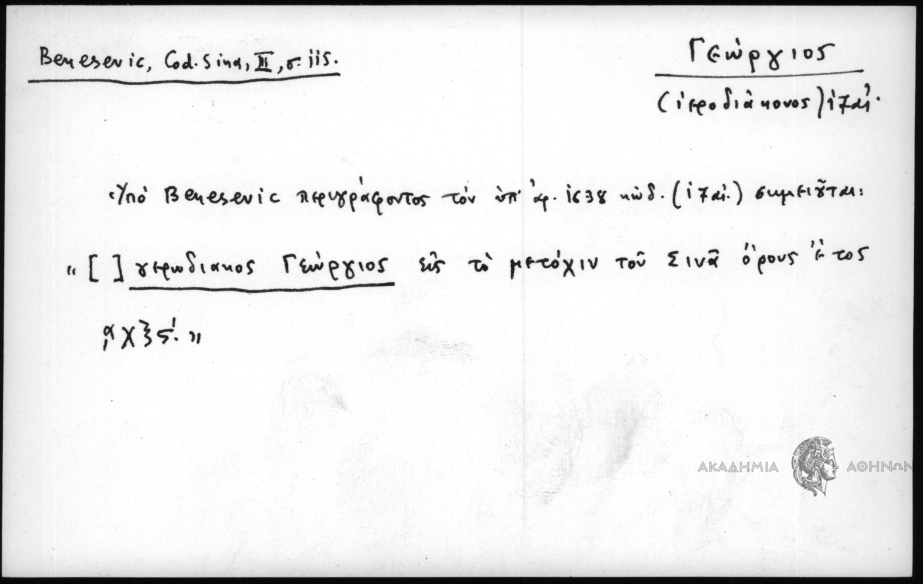 Benesevic, Cod. Sina, III, σ. 115.
Γεώργιος
(ἱεροδιάκονος) 17 αἰ.
Ὑπό Benesevic περιγράφοντος τόν ὑπ' ἀρ. 1638 κώδ. (17 αἰ.) σημειοῦται:
"[ ] γερωδιακος Γεώργιος εἰς τὸ μετόχιν τοῦ Σινᾶ ὄρους ἔτος
͵αχξς΄."
ΑΚΑΔΗΜΙΑ ΑΘΗΝΩΝ